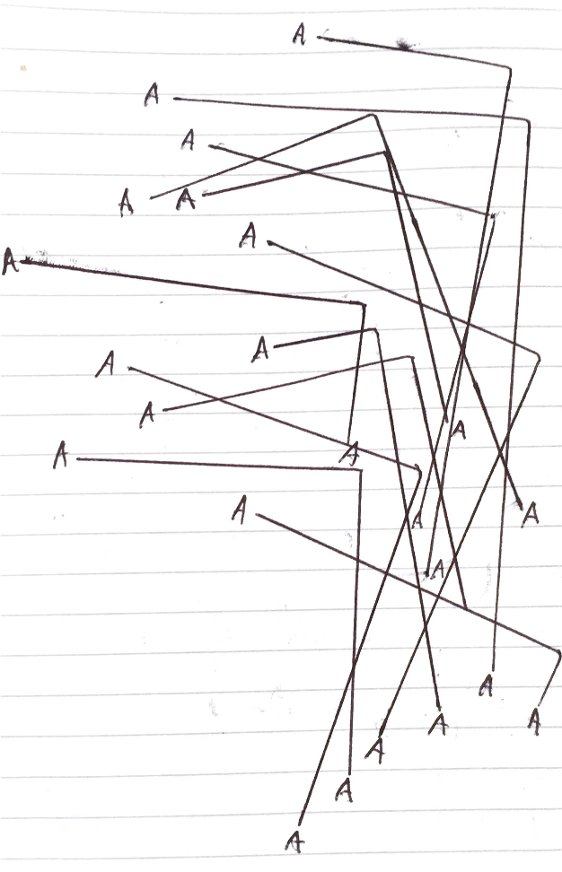 A
A
A
A A
A
A
A
A
A
A
A A
A
A
A
A
A
A A
A
A
A